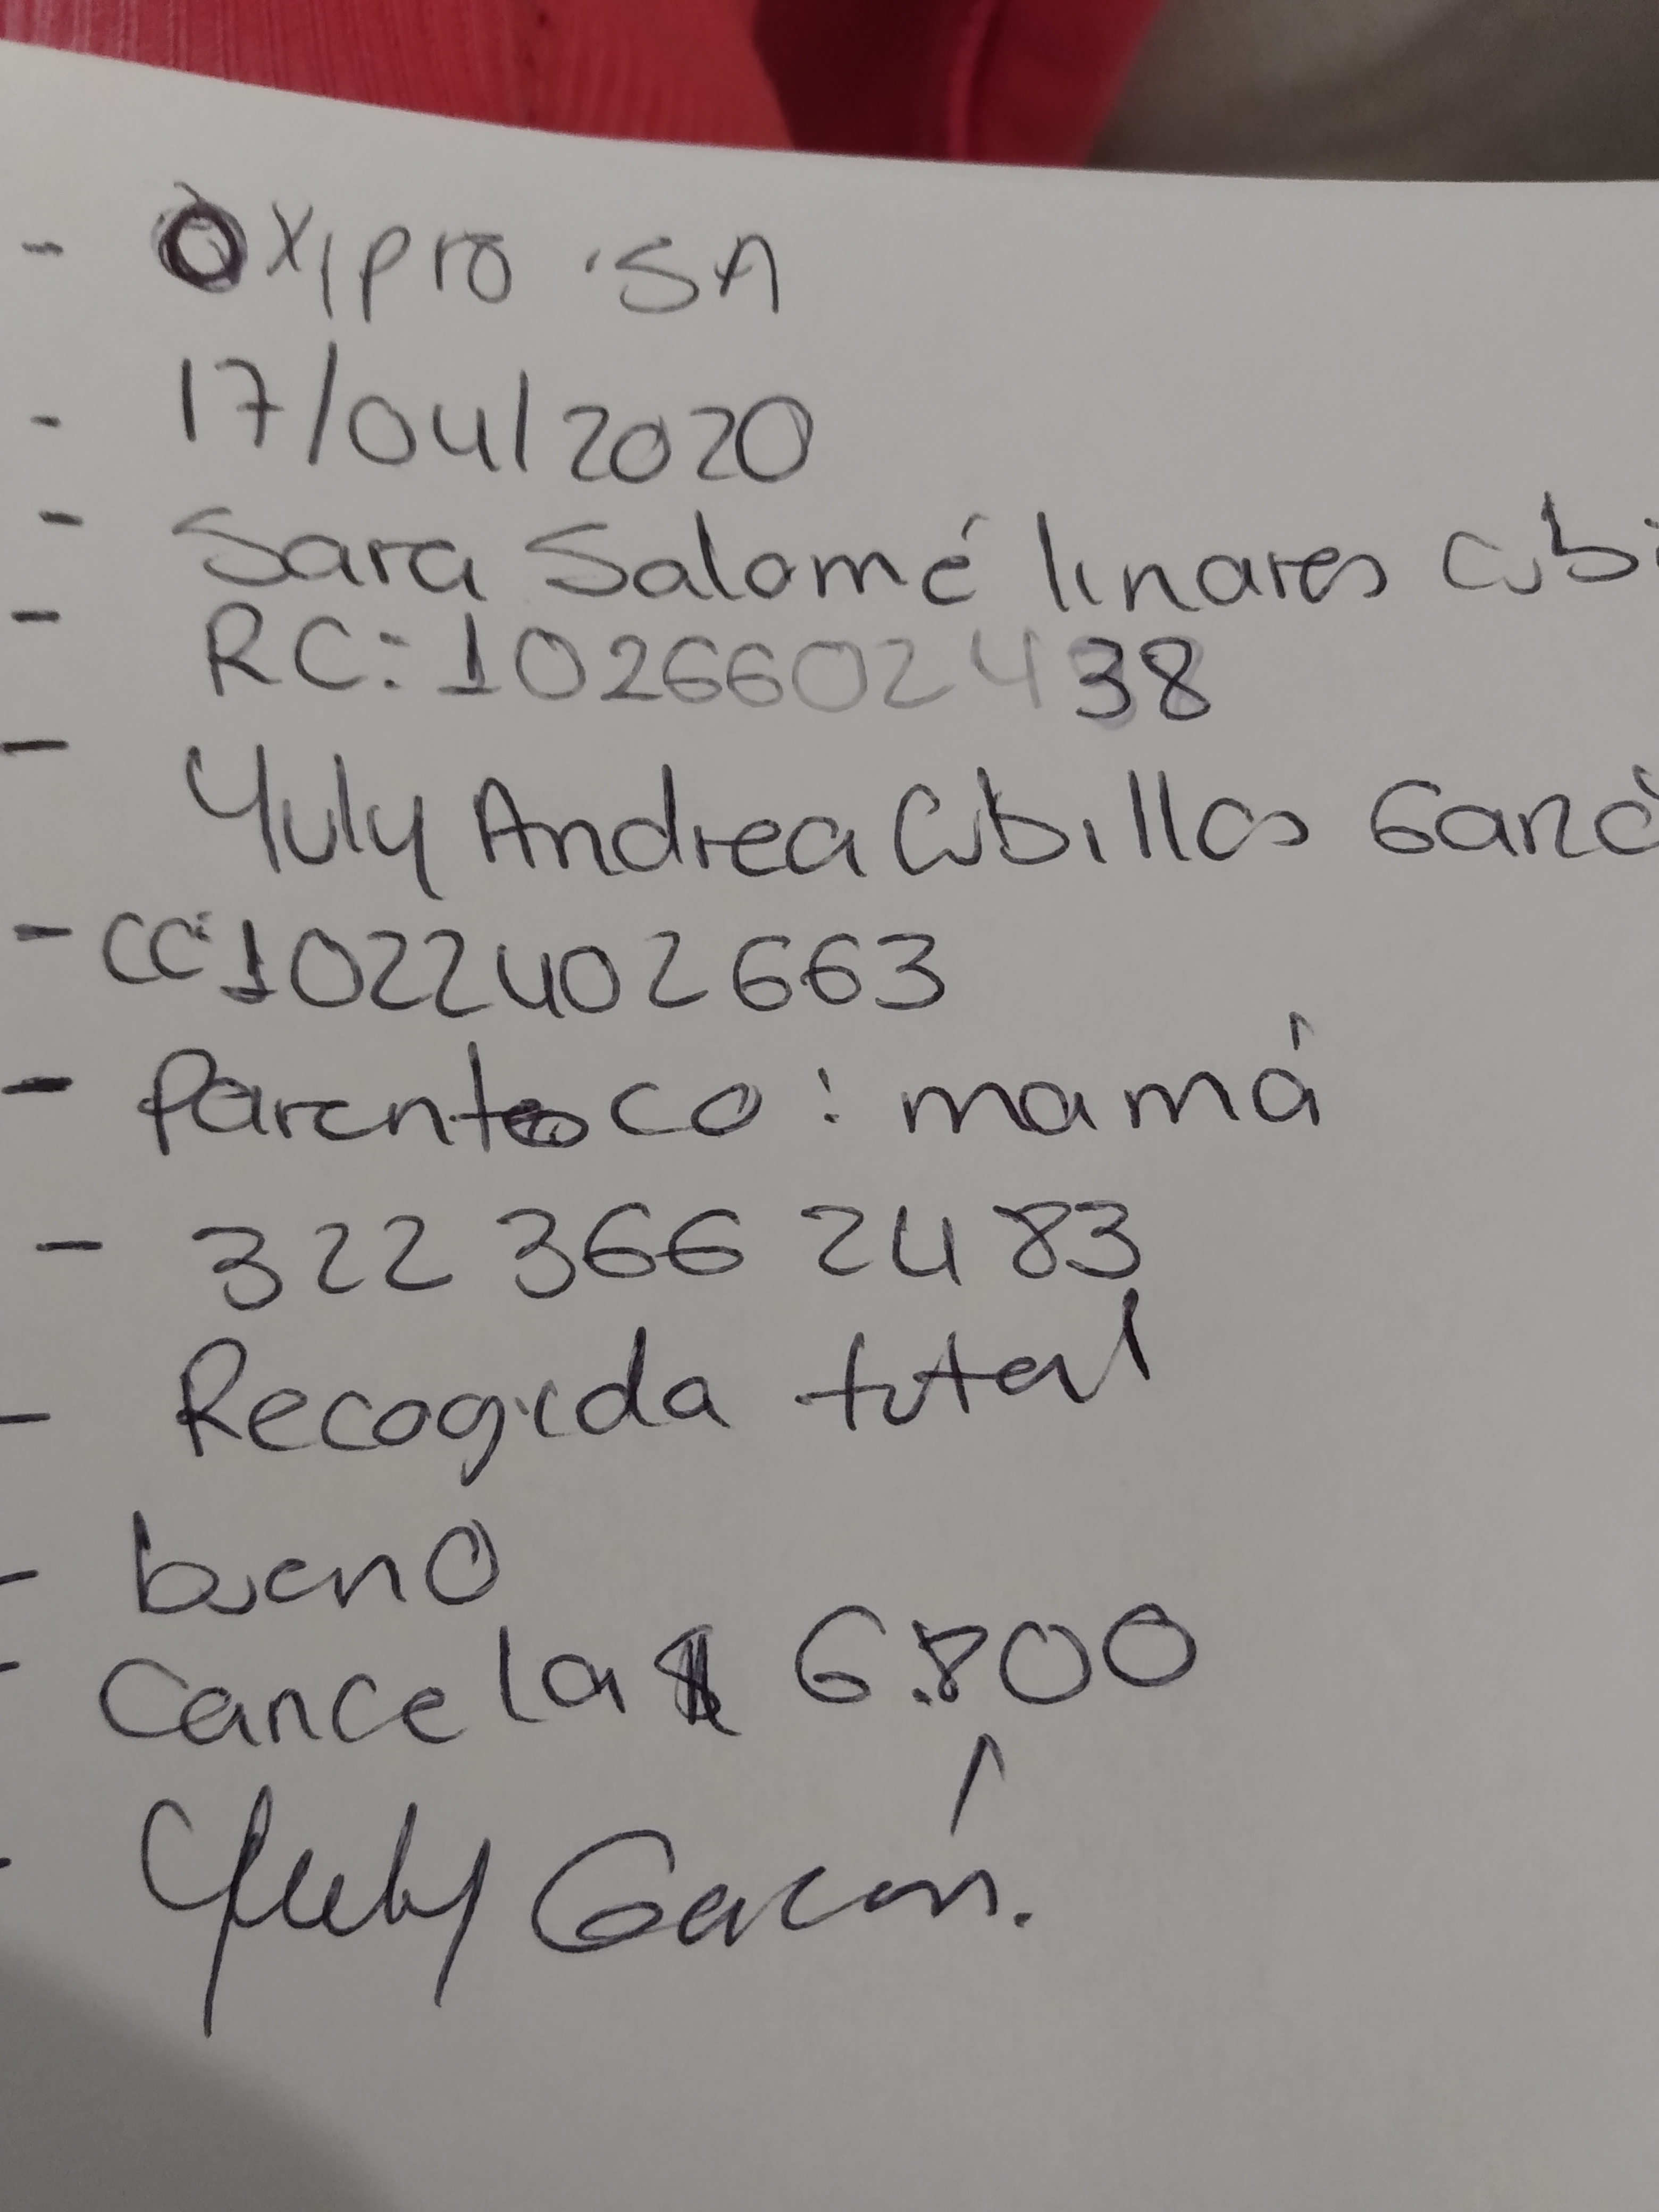 - Oxipro .SA
- 17/04/2020
- Sara Salomé linares cubi
- RC: 1026602438
- Yuly Andrea Cubillos Garzó
- CC: 1022402663
- Parentesco: mamá
- 322 366 2483
- Recogida total
- bueno
- Cancela $ 6.800
- Yuly Garzón.